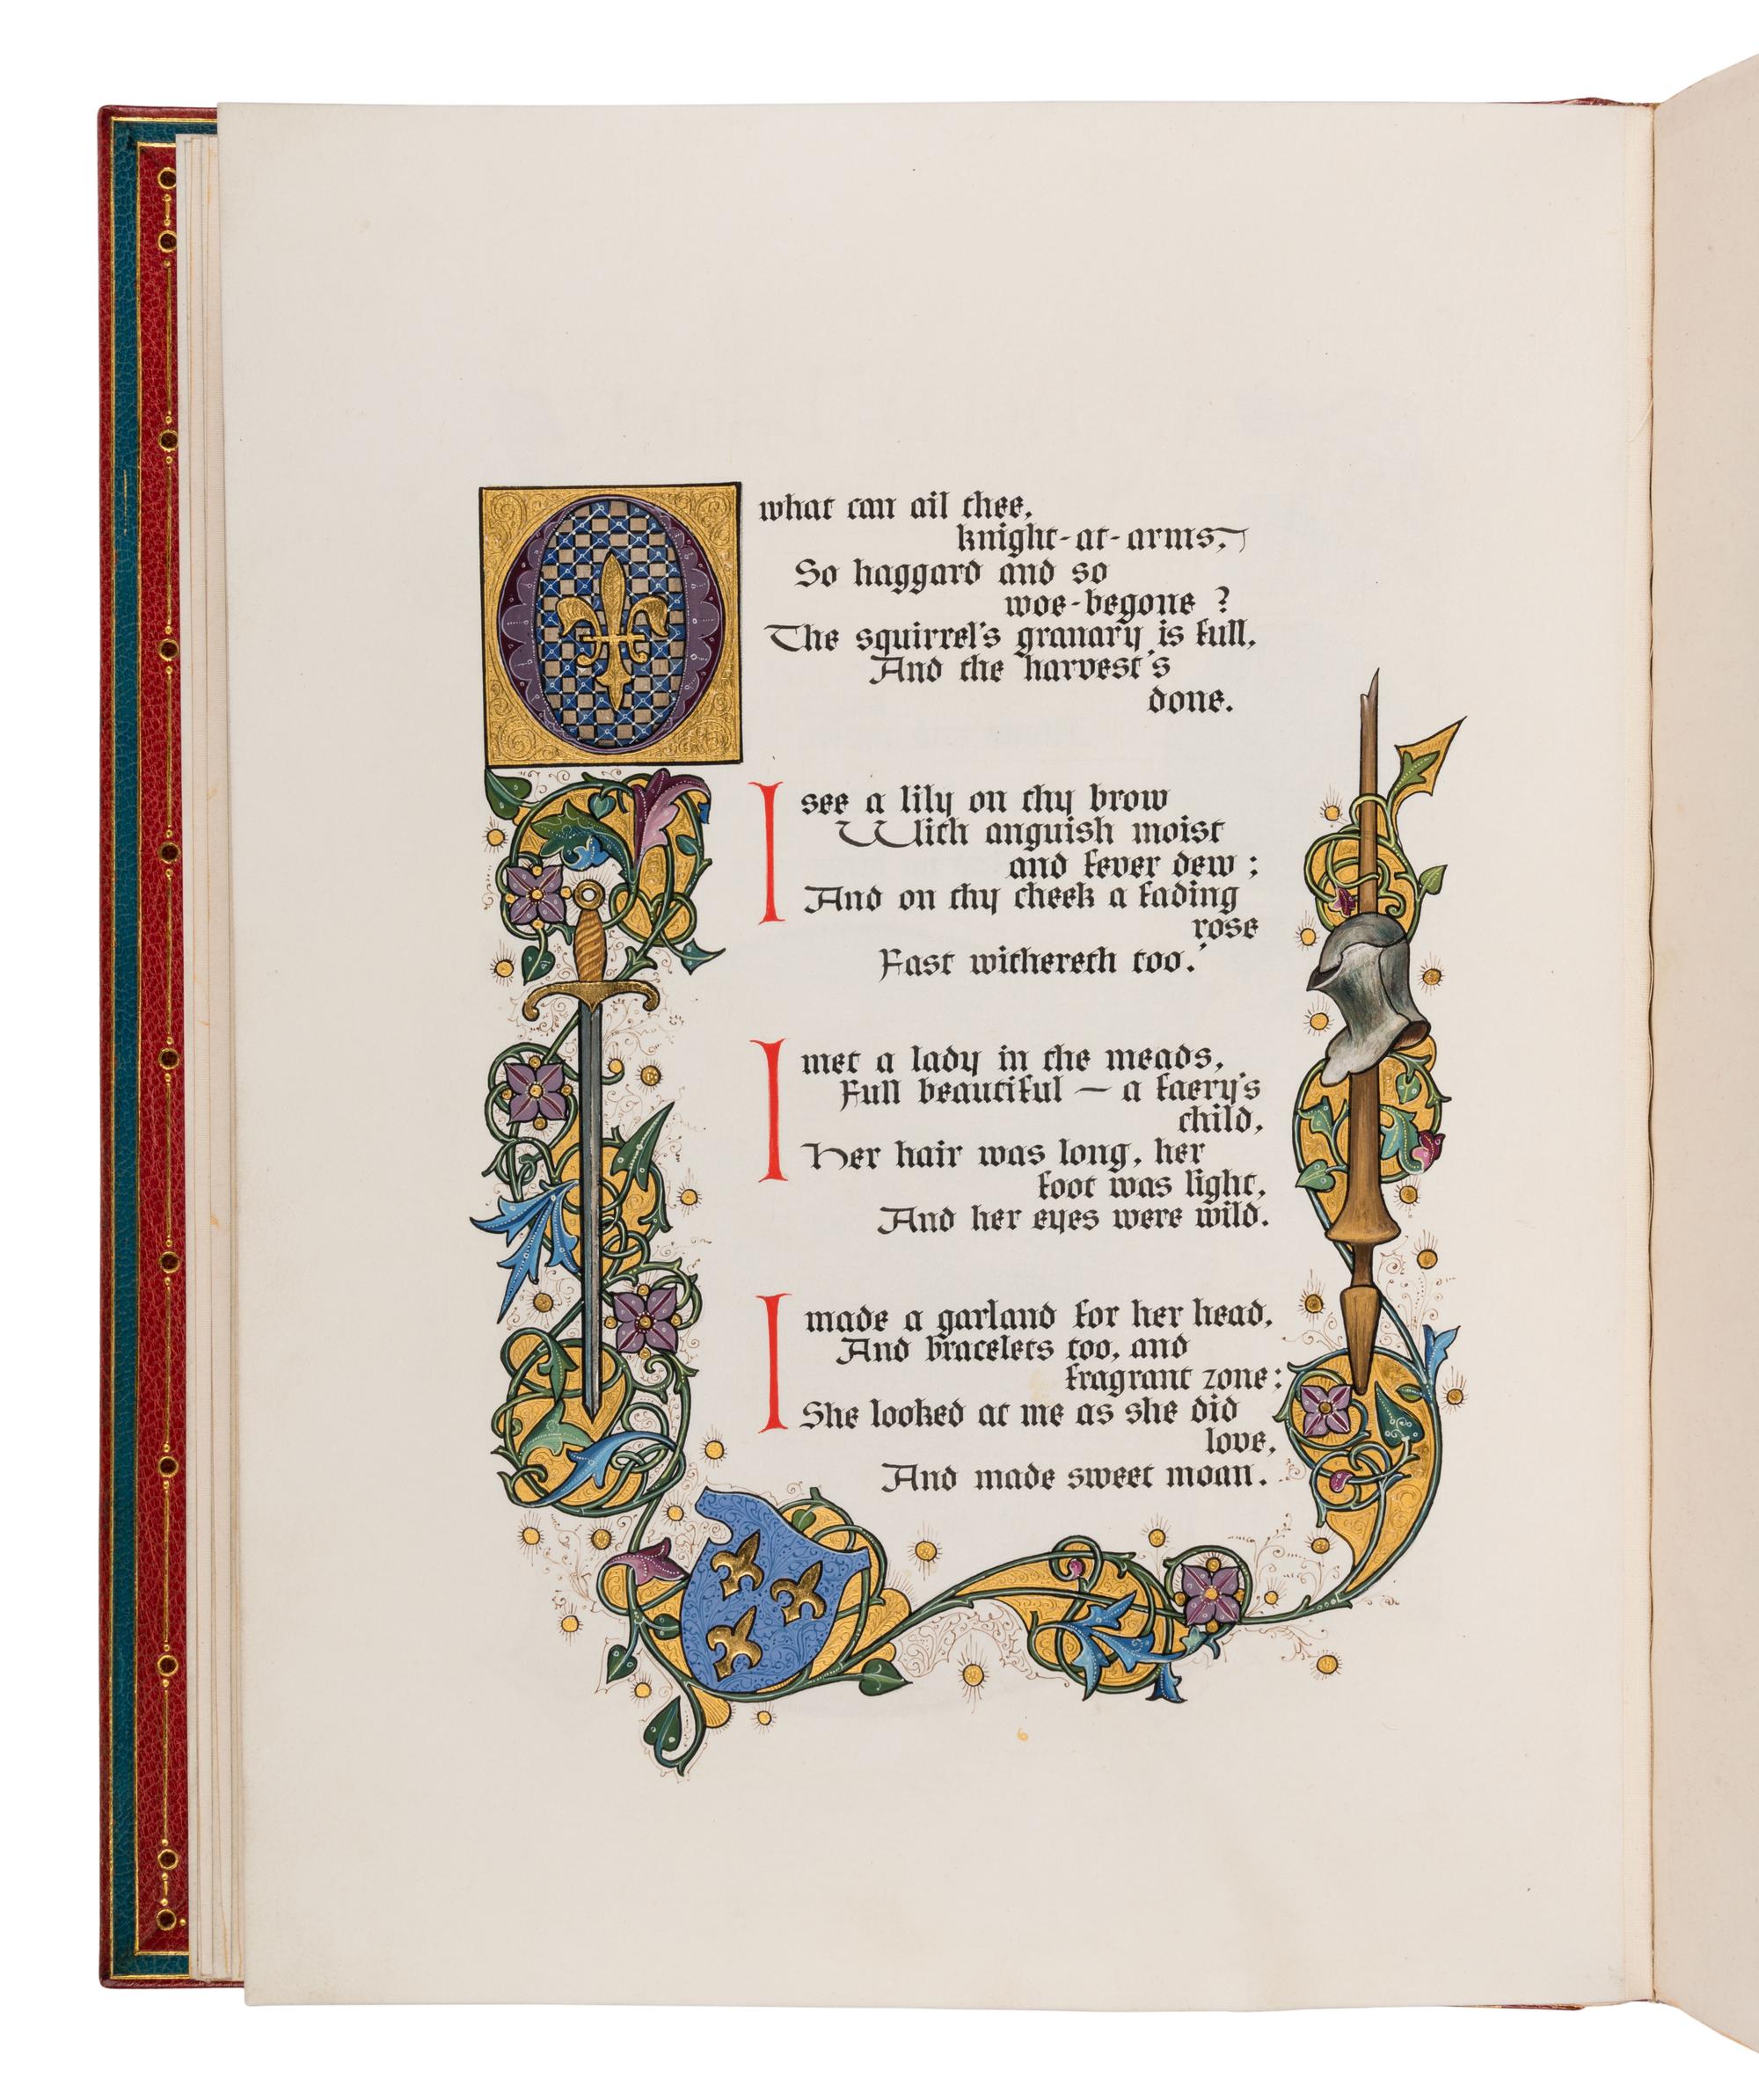 O what can ail thee,
knight-at-arms,
So haggard and so
woe-begone ?
The squirrel's granary is full,
And the harvest's
done.
I see a lily on thy brow
With anguish moist
and fever dew ;
And on thy cheek a fading
rose
Fast withereth too.
I met a lady in the meads,
Full beautiful — a faery's
child,
Her hair was long, her
foot was light,
And her eyes were wild.
I made a garland for her head,
And bracelets too, and
fragrant zone ;
She looked at me as she did
love,
And made sweet moan.